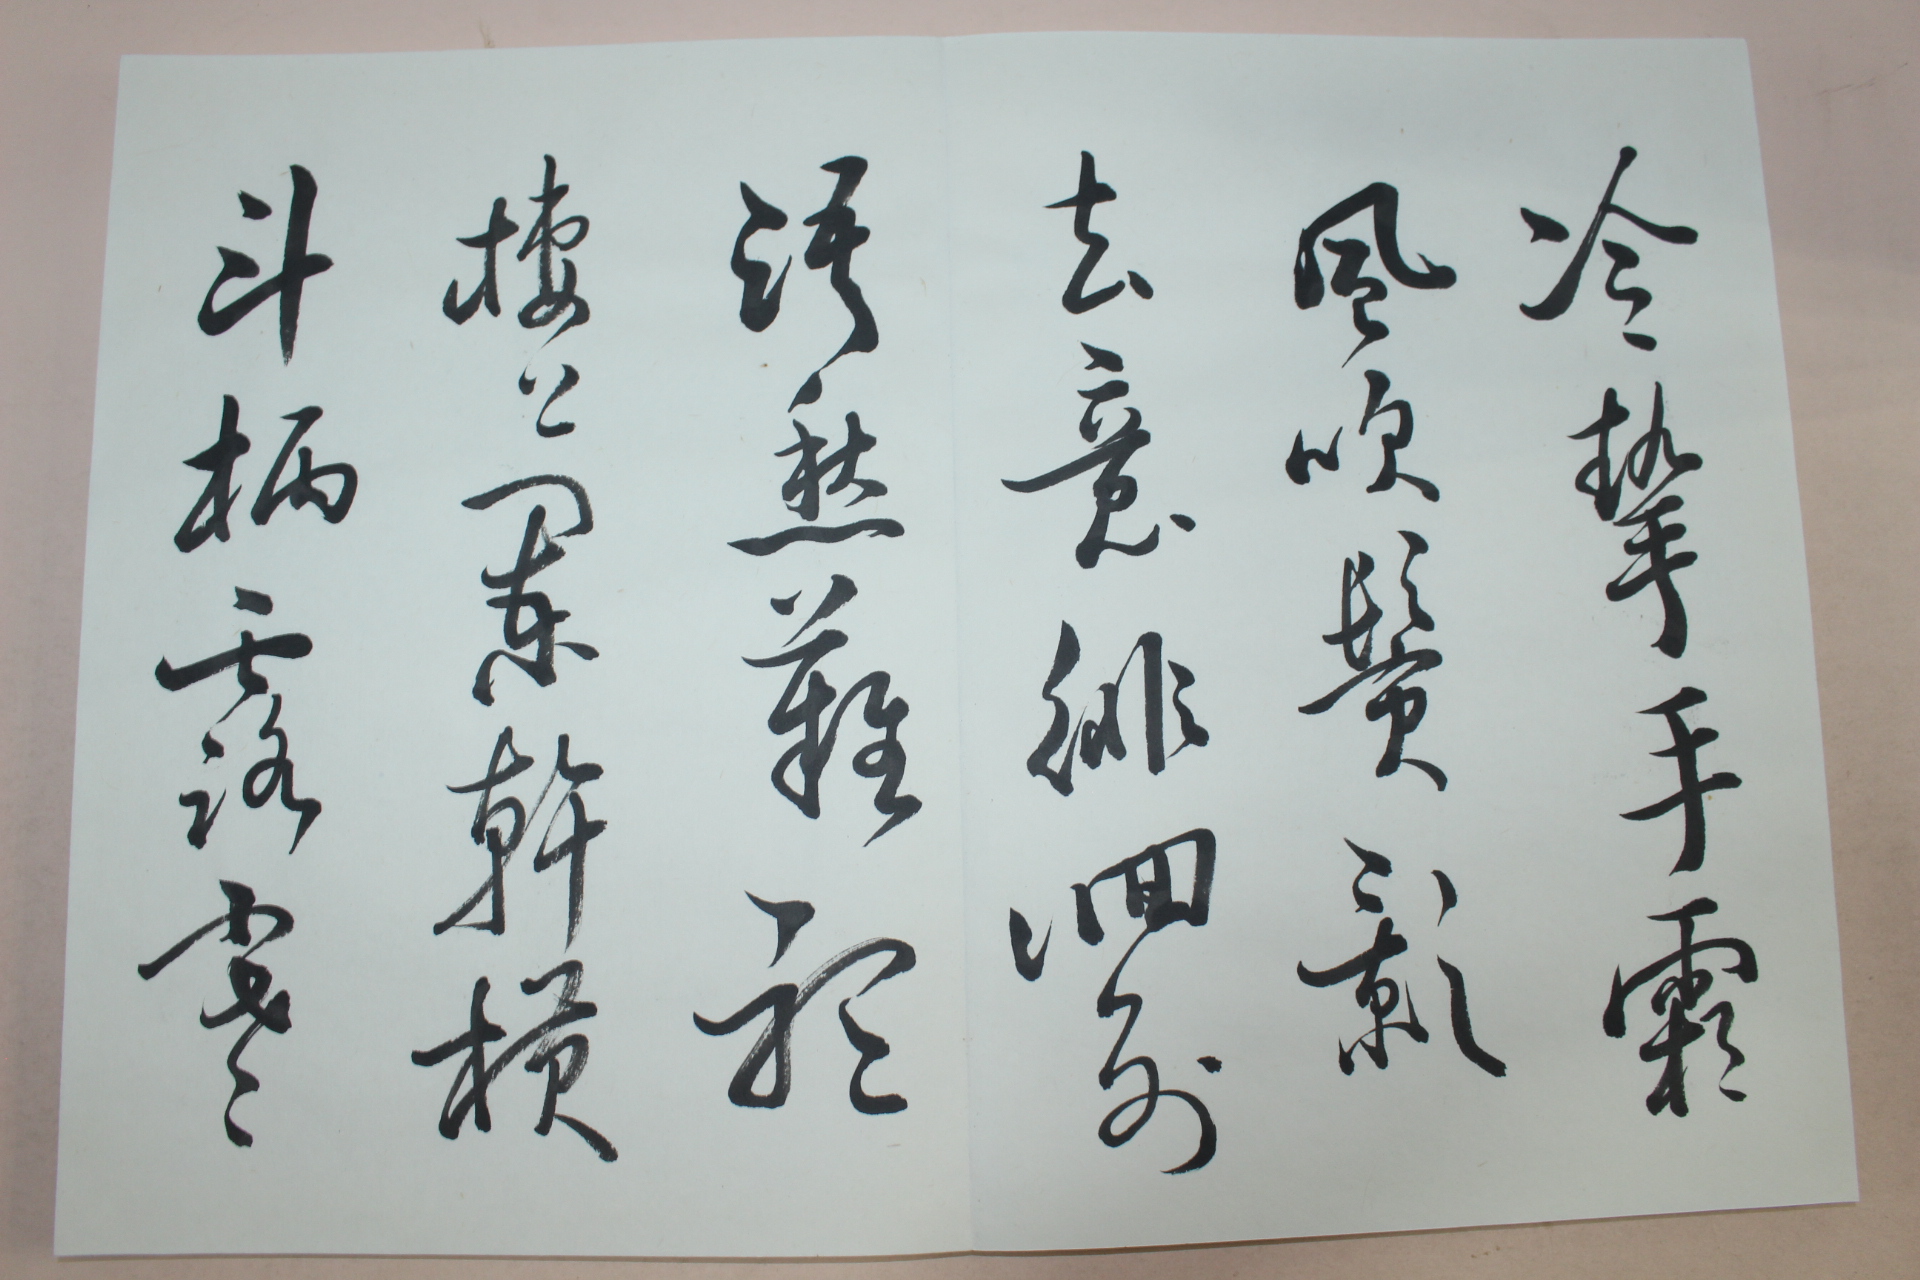 冷摯手霜
風吹鬢影
去意徘徊別
語愁難聽
樓上闌幹橫
斗柄露寒